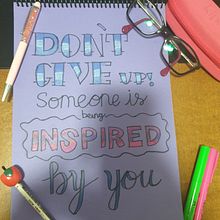 DON'T
GIVE UP!
Someone is
being
INSPIRED
by you